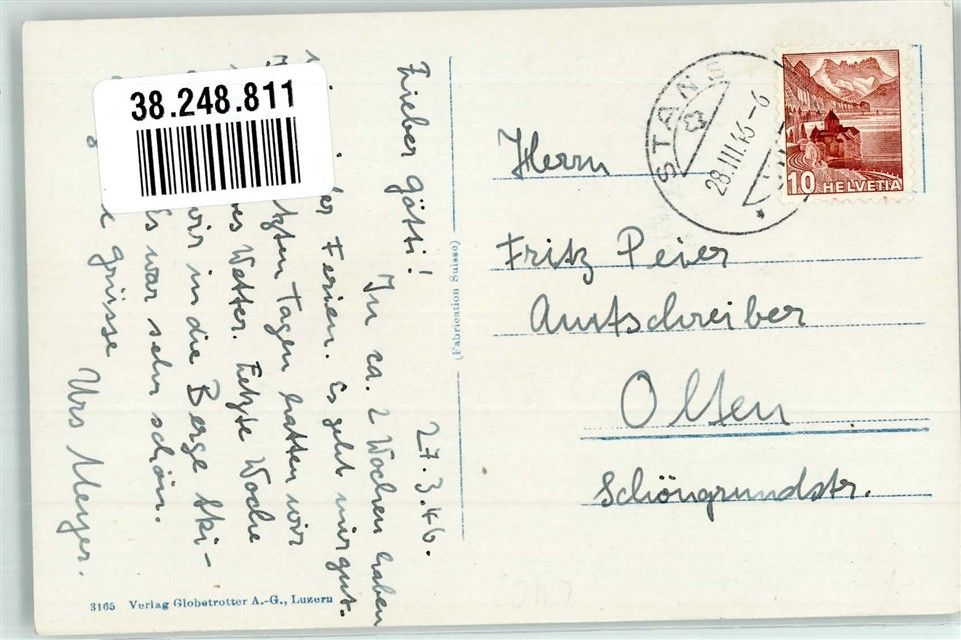 38.248.811
27.3.46.
Lieber Götti!
In ca. 2 Wochen haben
Ferien. Es geht mir gut.
tzten Tagen hatten wir
es Wetter. Letzte Woche
wir in die Berge Ski-
Es war sehr schön.
grüsse
Urs Meyer.
(Fabrication Suisse)
STANS
28.III.46-6
10 HELVETIA
Herrn
Fritz Peier
Amtschreiber
Olten
Schöngrundstr.
3165 Verlag Globetrotter A.-G., Luzern